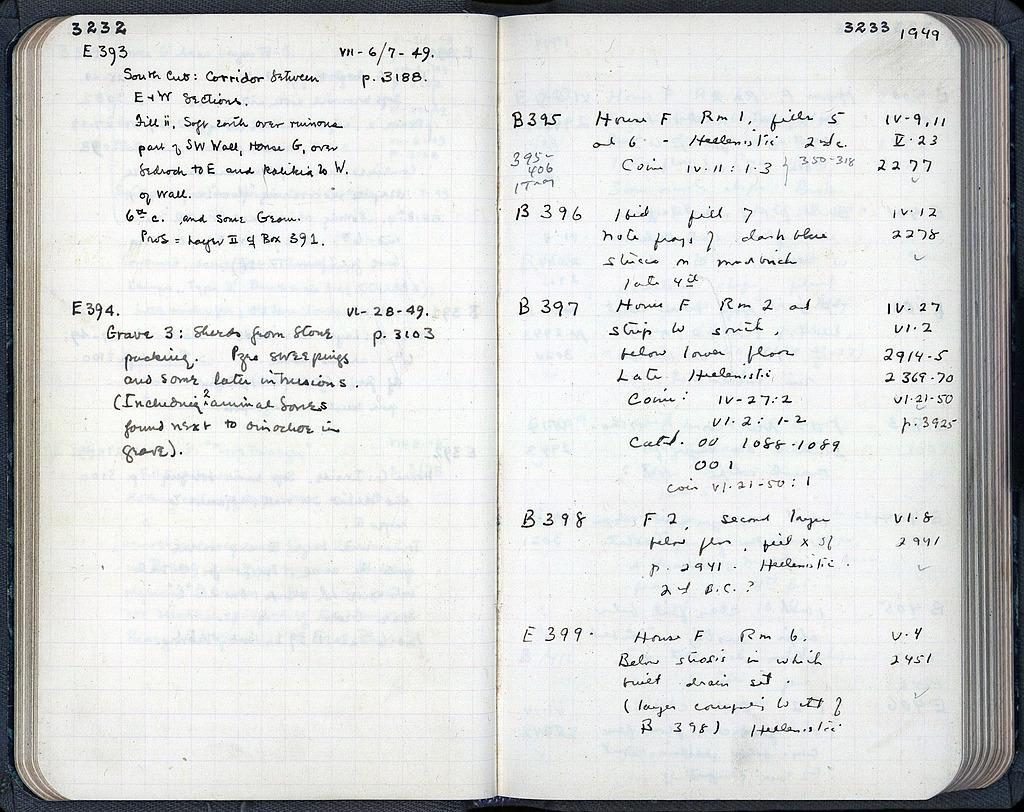 3232
E 393 VII-6/7-49.
South Cut: Corridor between p. 3188.
E+W Sections.
Fill ii, Soft earth over ruinous
part of SW Wall, House G, over
bedrock to E and to W.
of wall.
6th c. and some Geom.
Prob = Layer II of Box 391.
E 394. VI-28-49.
Grave 3: Sherds from Stone p. 3103
packing. Pyre sweepings
and some later intrusions.
(Including 2 animal bones
found next to oinochoe in
grave).
3233 1949
B 395 House F Rm 1, fill 5 IV-9, 11
at 6 - Hellenistic 2nd c. V-23
395-
406
1 Tray
Coin IV-11: 1-3 } 350-318 2277
B 396 Ibid fill 7 IV-12
note frags of dark blue 2278
stucco on mudbrick
late 4th
B 397 House F Rm 2 at IV-27
strip to south, VI-2
below lower floor 2914-5
Late Hellenistic 2369-70
Coin: IV-27: 2 VI-21-50
VI-2: 1-2 p. 3925
Catd. OO 1088-1089
OO 1
Coin VI-21-50: 1
B 398 F 2 second layer VI-8
below floor, fill x of 2941
p. 2941. Hellenistic.
2nd B.C.?
E 399. House F Rm 6. V-4
Below stosis in which 2451
built drain set.
(layer
B 398) Hellenistic